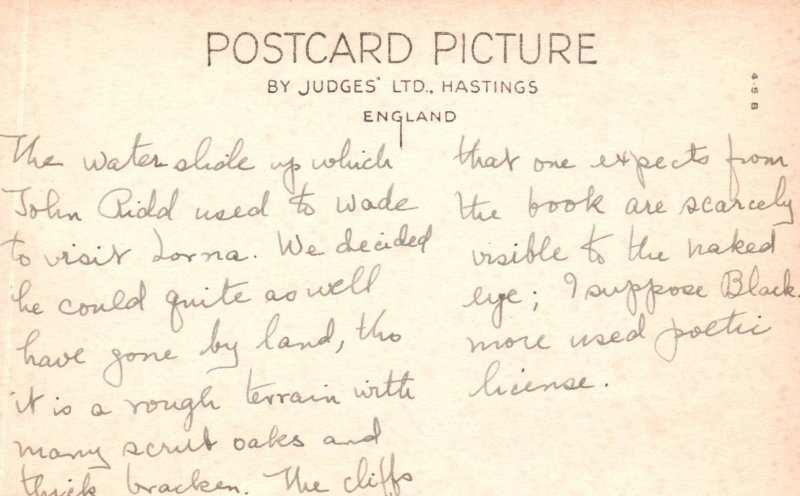 POSTCARD PICTURE
BY JUDGES' LTD., HASTINGS
ENGLAND
4·5 B
The water slide up which
John Ridd used to wade
to visit Lorna. We decided
he could quite as well
have gone by land, tho
it is a rough terrain with
many scrub oaks and
thick bracken. The cliffs
that one expects from
the book are scarcely
visible to the naked
eye; I suppose Black-
more used poetic
license.